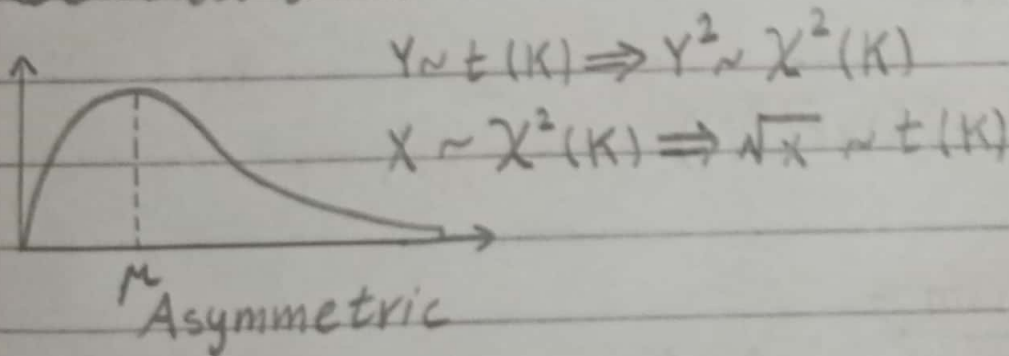 Y ~ t (K) ⇒ Y² ~ χ² (K)
X ~ χ² (K) ⇒ √x ~ t (K)
μ
Asymmetric